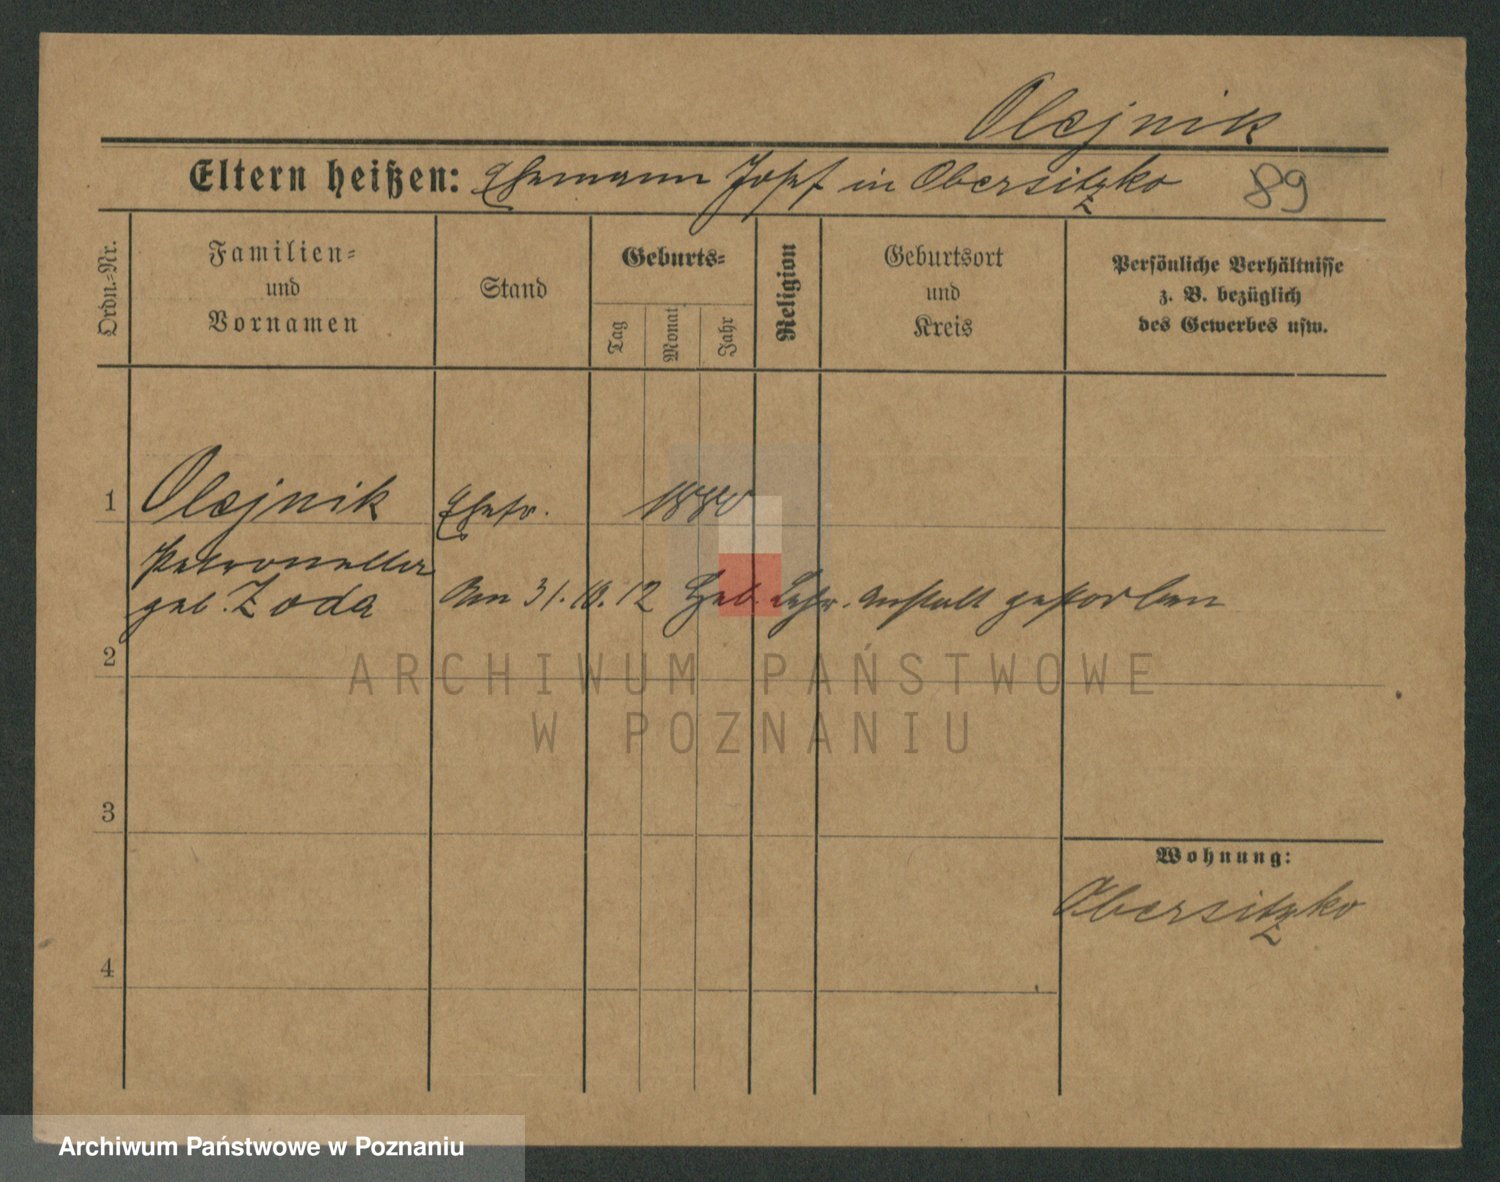 Olejnik
Eltern heißen: Ehemann Josef in Obersitzko 89
Ordn.-Nr.
Familien-
und
Vornamen
Stand
Geburts-
Tag
Monat
Jahr
Religion
Geburtsort
und
Kreis
Persönliche Verhältnisse
z. B. bezüglich
des Gewerbes usw.
1 Olejnik Ehefr. 1880
Petronella
geb. Zoda Am 31.10.12 Heb. Lehr. Anstalt gestorben
2
ARCHIWUM PAŃSTWOWE
W POZNANIU
3
Wohnung:
Obersitzko
4
Archiwum Państwowe w Poznaniu